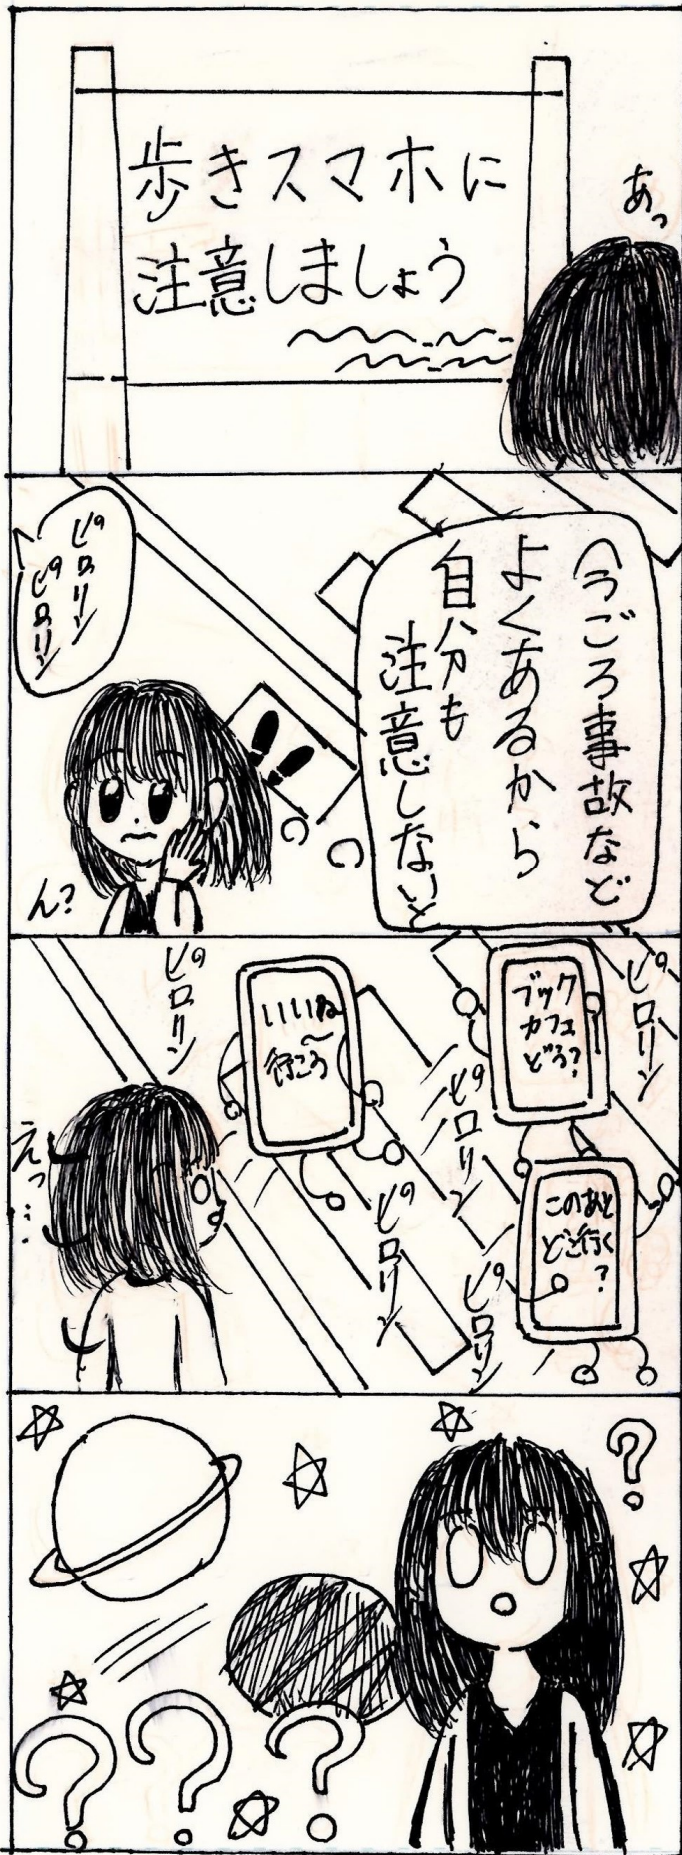 歩きスマホに
注意しましょう
あっ
今ごろ事故など
よくあるから
自分も
注意しないと
ピロリン
ピロリン
ん?
ピロリン
ブック
カフェ
どう?
いいね〜
行こう
ピロリン
ピロリン
このあと
どこ行く
?
ピロリン
ピロリン
えっ…
? ? ? ?